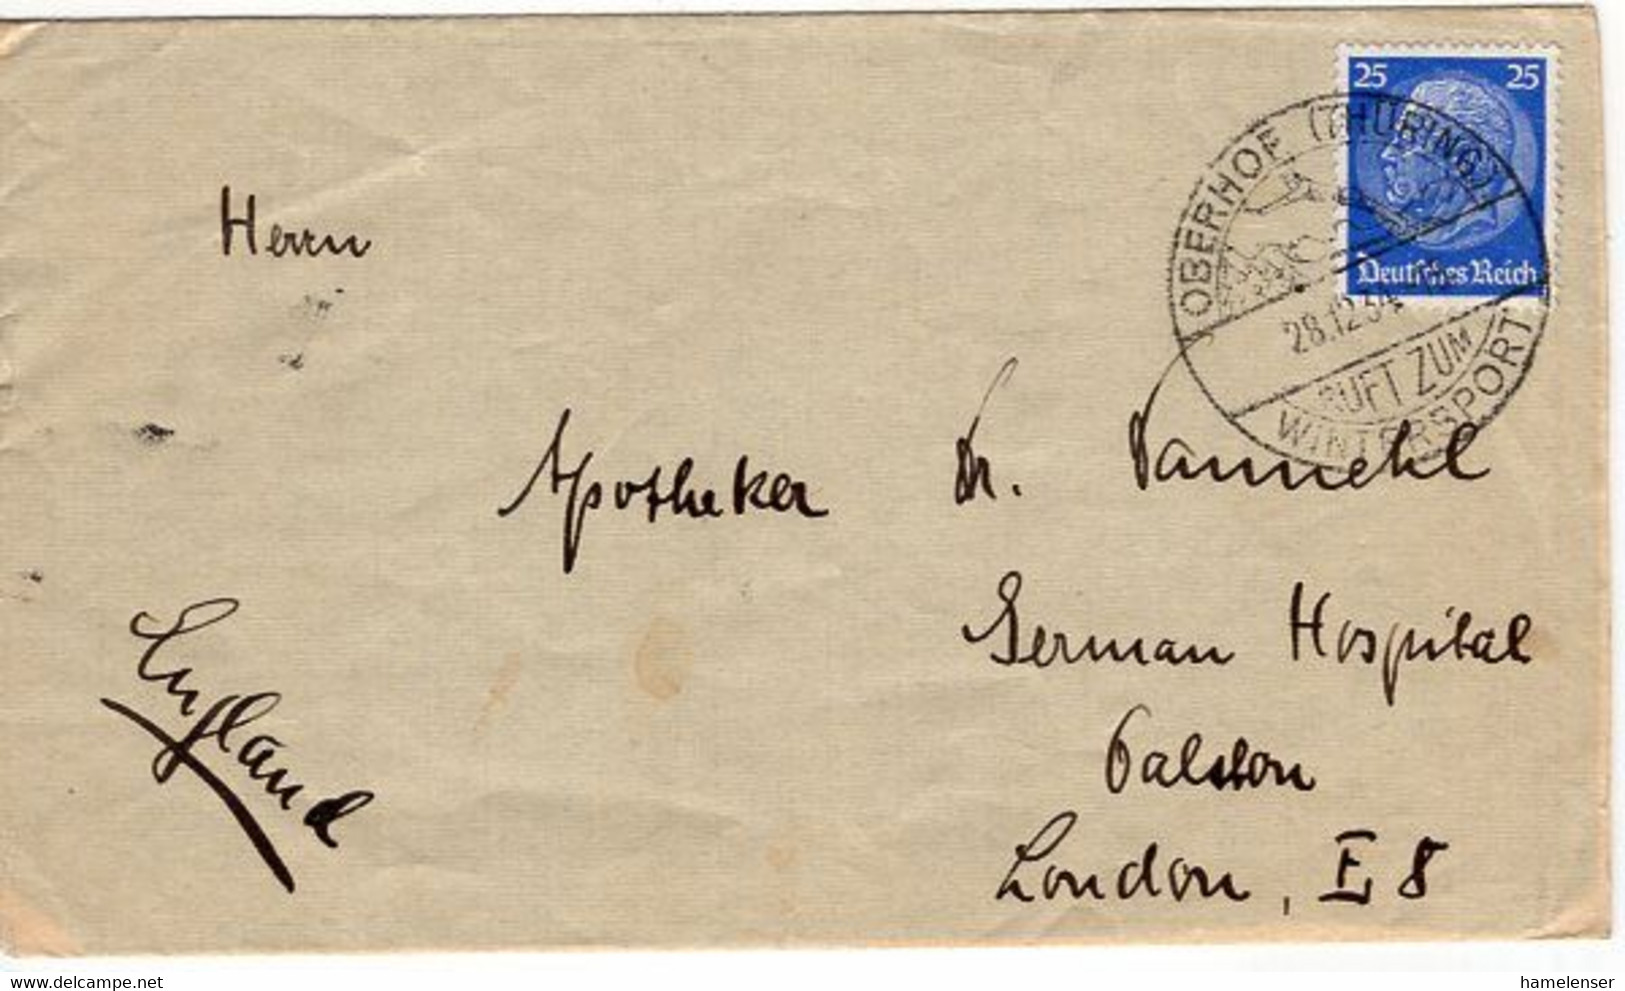 25 25
Deutsches Reich
OBERHOF (THÜRING.)
28.12.34
RUFT ZUM
WINTERSPORT
Herrn
Apotheker Dr.
German Hospital
Dalston
London, E 8
England
hamelenser